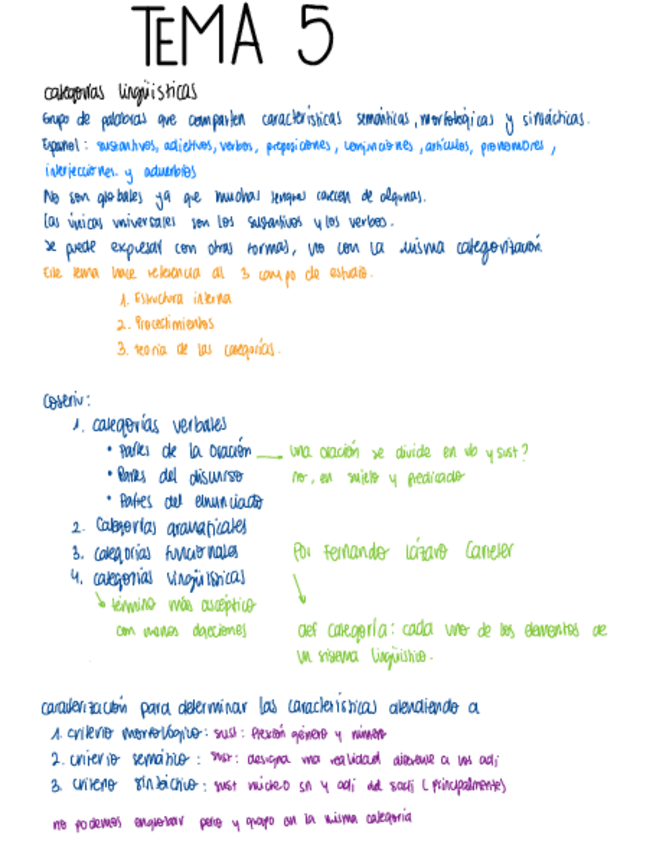 TEMA 5
categorías lingüísticas
Grupo de palabras que comparten características semánticas, morfológicas y sintácticas.
Español: sustantivos, adjetivos, verbos, preposiciones, conjunciones, artículos, pronombres,
interjecciones y adverbios
No son globales ya que muchas lenguas carecen de algunas.
Las únicas universales son los sustantivos y los verbos.
Se puede expresar con otras formas, no con la misma categorización.
Este tema hace referencia al 3 campo de estudio.
1. Estructura interna
2. Procedimientos
3. teoría de las categorías.
Coseriu:
1. categorías verbales
• Partes de la oración → una oración se divide en vb y sust?
• Partes del discurso no, en sujeto y predicado
• Partes del enunciado
2. Categorías gramaticales
3. categorías funcionales Por Fernando Lázaro Carreter
4. categorías lingüísticas
término más aséptico
con menos objeciones def categoría: cada uno de los elementos de
un sistema lingüístico.
caracterización para determinar las características atendiendo a
1. criterio morfológico: sust: flexión género y número
2. criterio semántico: sust: designa una realidad diferente a los adj
3. criterio sintáctico: sust núcleo sn y adj del sadj (principalmente)
no podemos englobar pero y guapo en la misma categoría